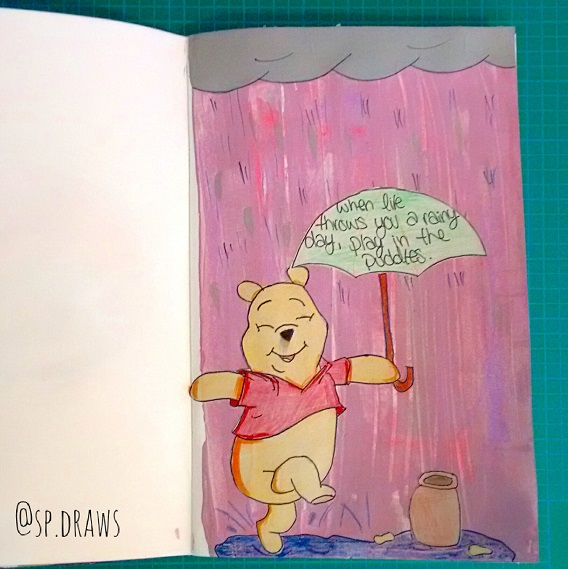 when life
throws you a rainy
day, play in the
puddles.
@SP.DRAWS